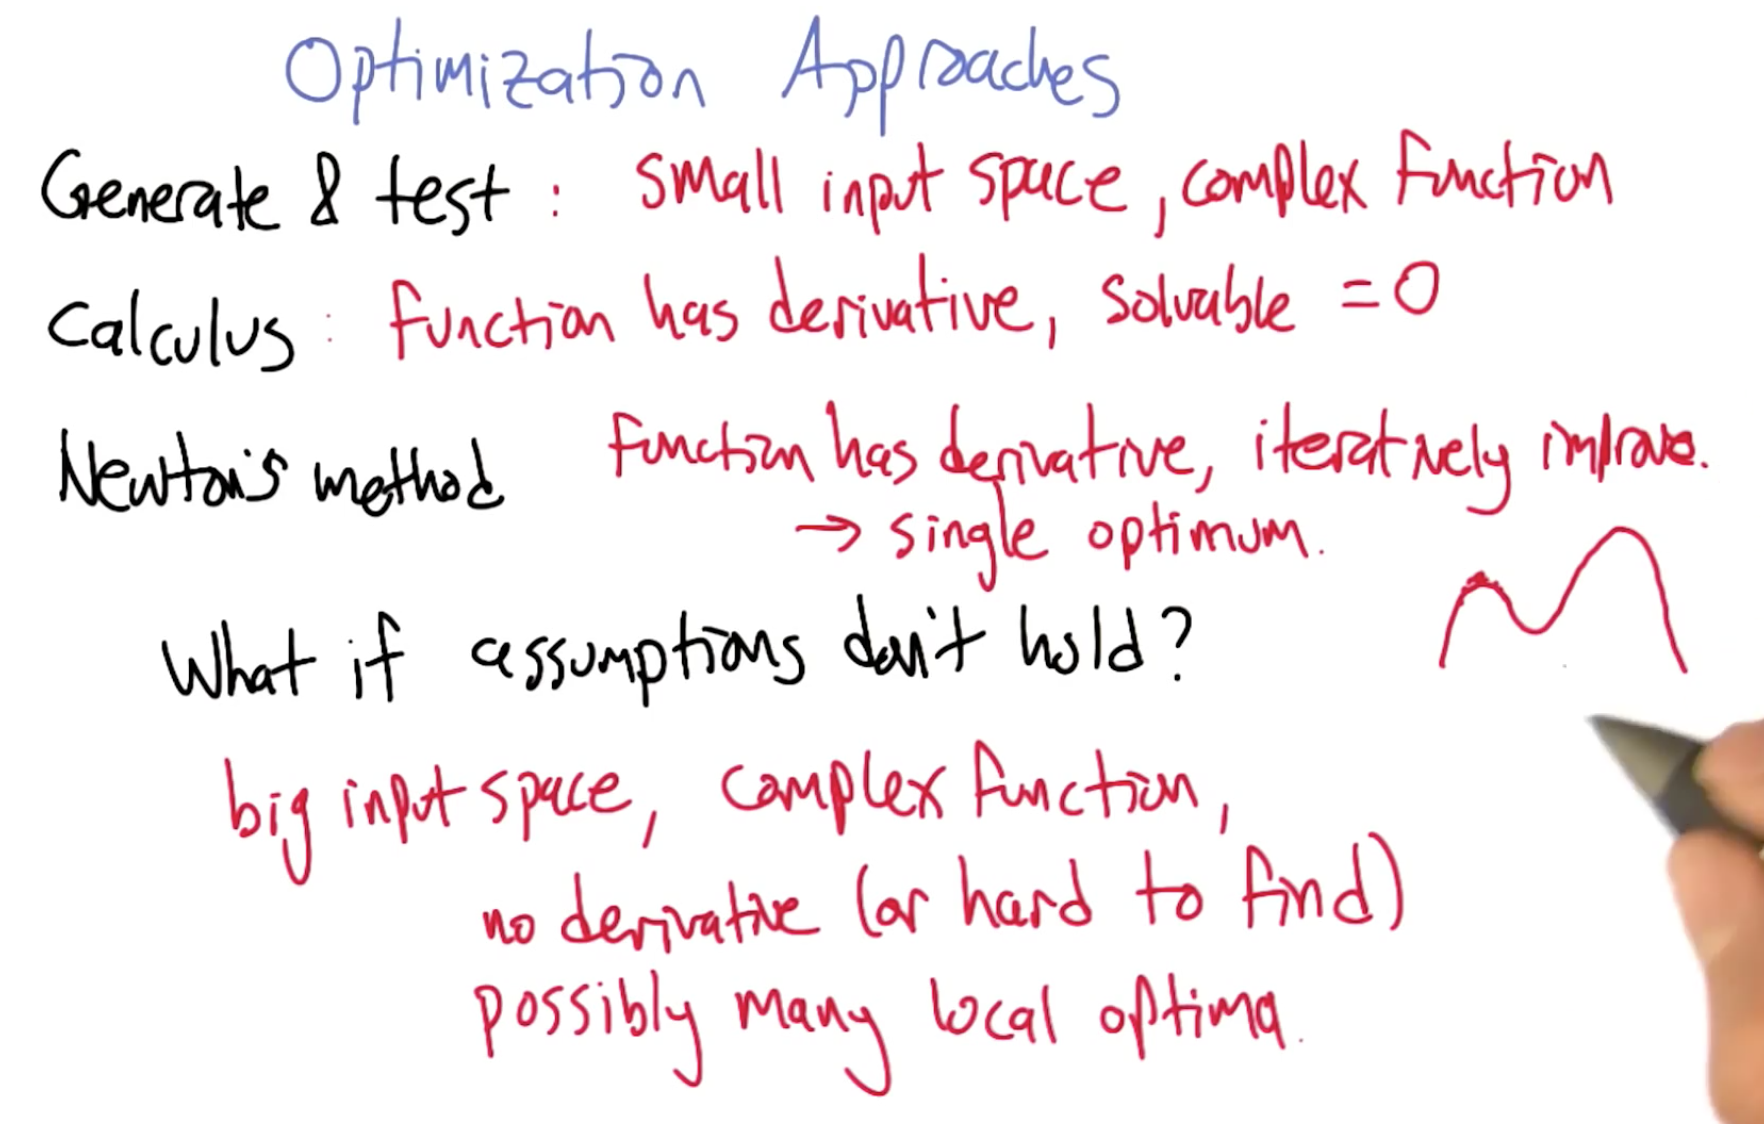 Optimization Approaches
Generate & test : small input space, complex function
Calculus : function has derivative, solvable =0
Newton's method function has derivative, iteratively improve.
→ single optimum.
What if assumptions don't hold?
big input space, complex function,
no derivative (or hard to find)
possibly many local optima.